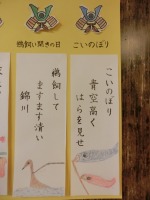 こいのぼり
鵜飼い開きの日
こいのぼり
青空高く
はらを見せ
鵜飼して
ますます清い
錦川